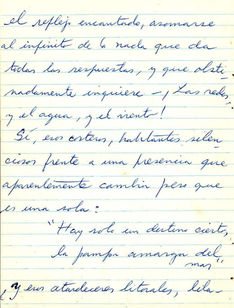 el reflejo encantado, asomarse
al infinito de la nada que da
todas las respuestas, y que obsti
nadamente inquiere —¡Las redes,
y el agua, y el viento!
Sí, esos esteros, habitantes silen
ciosos frente a una presencia que
aparentemente cambia pero que
es una sola:
"Hay solo un destino cierto,
la pampa amarga del
mar"
y sus atardeceres litorales, lela-